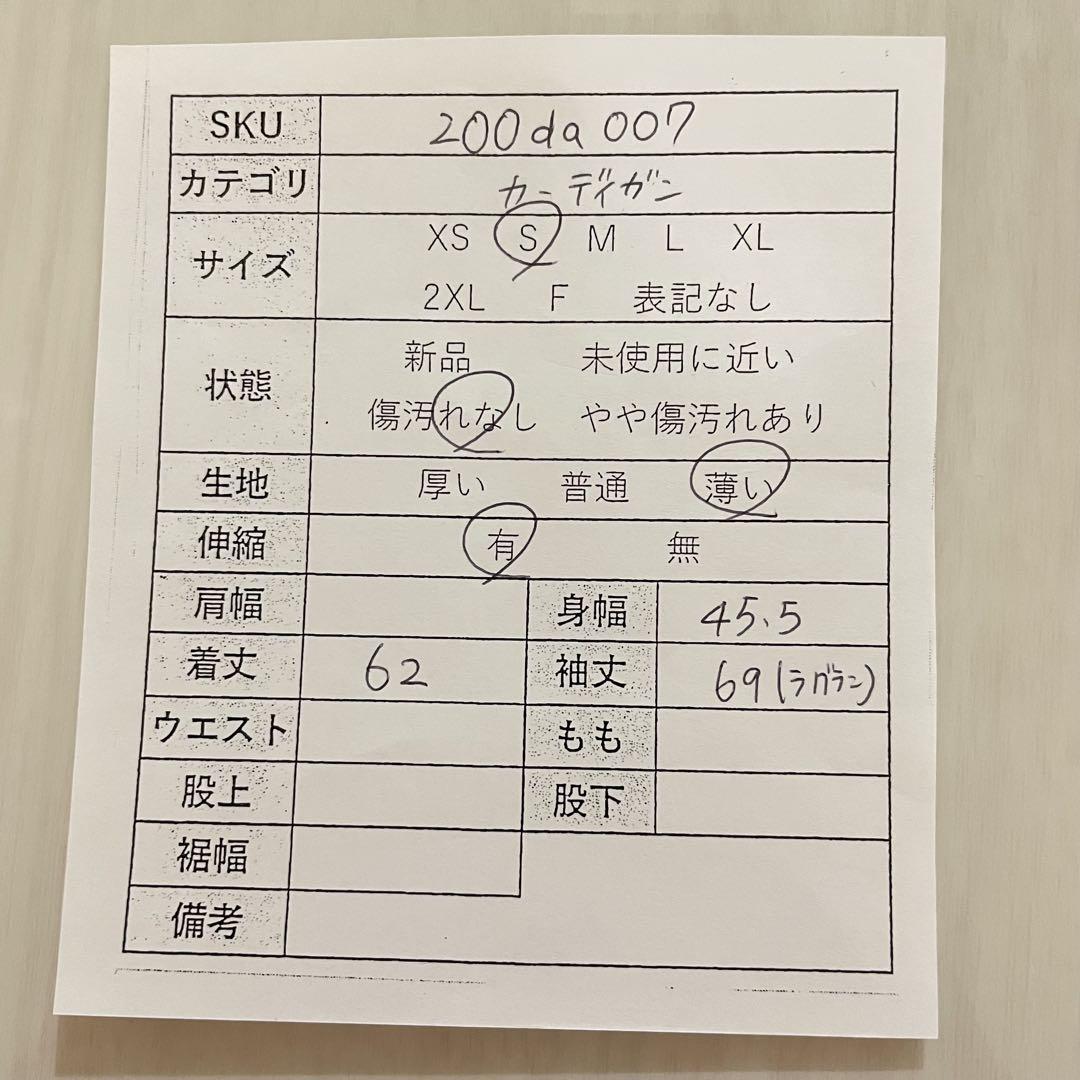 SKU 200da007
カテゴリ カーディガン
サイズ XS S M L XL
2XL F 表記なし
状態 新品 未使用に近い
傷汚れなし やや傷汚れあり
生地 厚い 普通 薄い
伸縮 有 無
肩幅 身幅 45.5
着丈 62 袖丈 69(ラグラン)
ウエスト もも
股上 股下
裾幅
備考